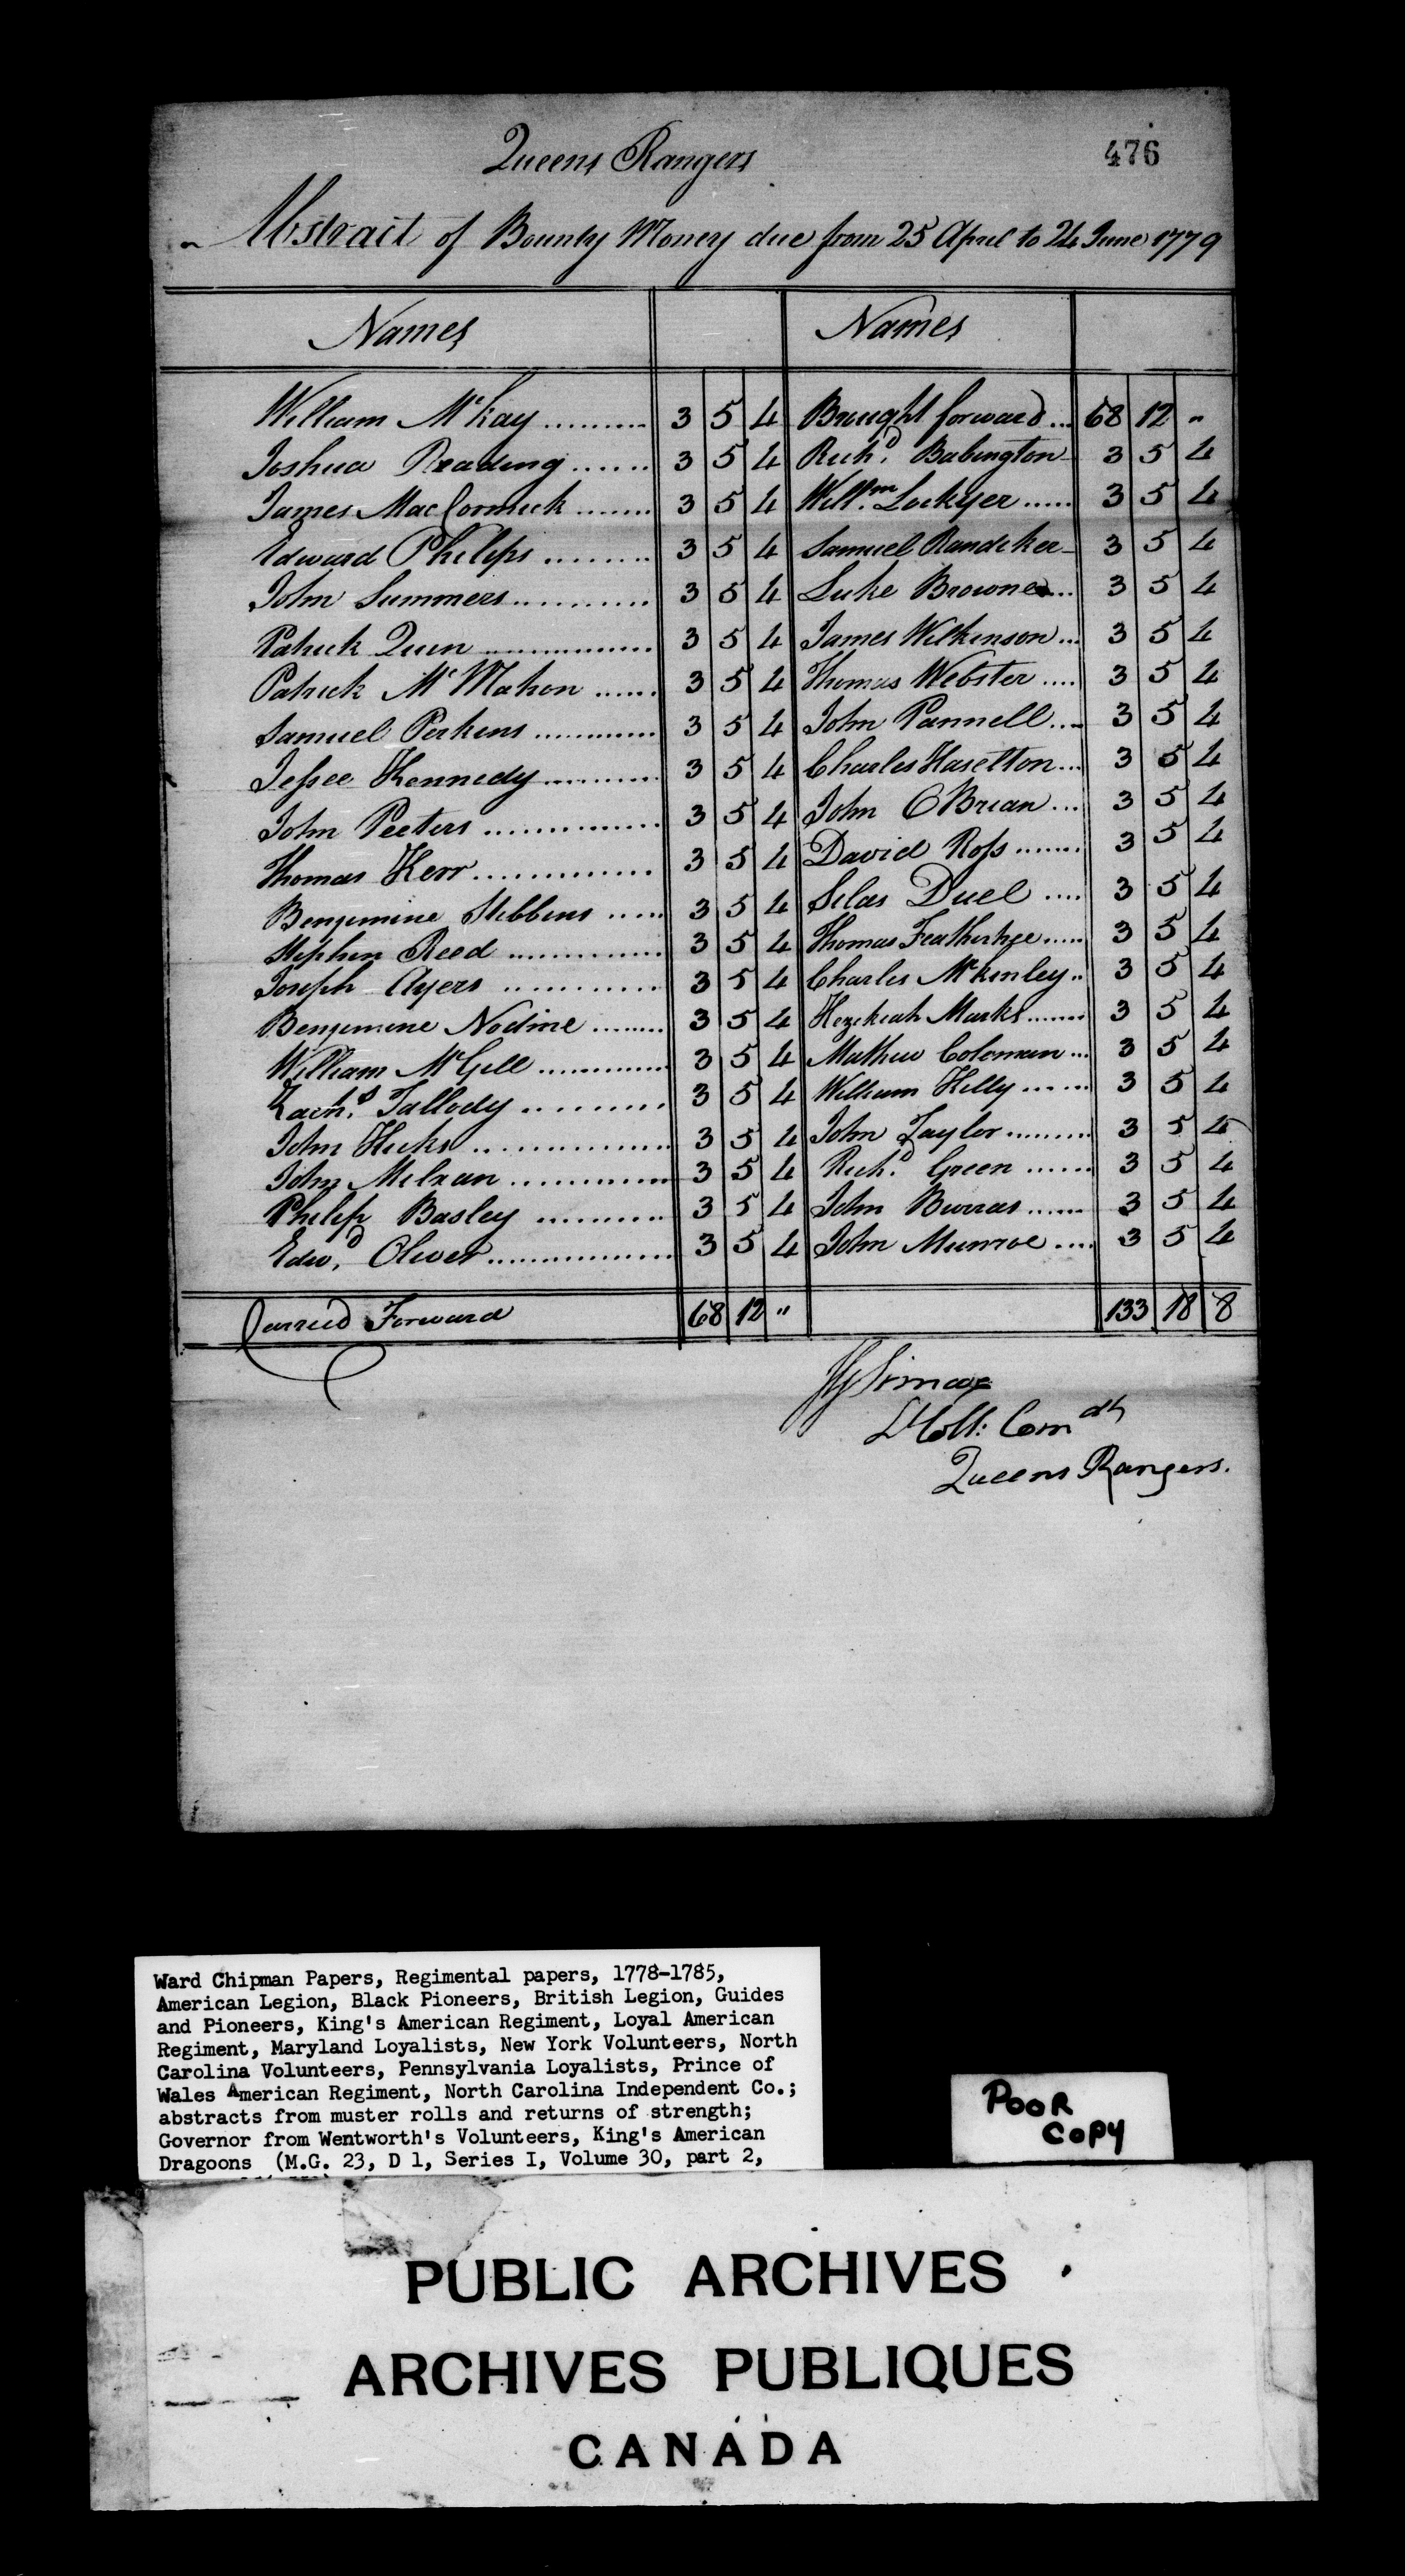 Queens Rangers
476
Abstract of Bounty Money due from 25 April to 24 June 1779
Names Names
William McKay 3 5 4 Brought forward 68 12 "
Joshua Reading 3 5 4 Richd. Babington 3 5 4
James MacCormick 3 5 4 Willm. Lockyer 3 5 4
Edward Philips 3 5 4 Samuel Randeker 3 5 4
John Summers 3 5 4 Luke Browne 3 5 4
Patrick Quin 3 5 4 James Wilkinson 3 5 4
Patrick McMahon 3 5 4 Thomas Webster 3 5 4
Samuel Perkins 3 5 4 John Pannell 3 5 4
Jessee Kennedy 3 5 4 Charles Haselton 3 5 4
John Peeters 3 5 4 John OBrian 3 5 4
Thomas Kerr 3 5 4 David Ross 3 5 4
Benjemine Stebbins 3 5 4 Silas Duel 3 5 4
Stephen Reed 3 5 4 Thomas 3 5 4
Joseph Ayers 3 5 4 Charles McKinley 3 5 4
Benjemine Nodine 3 5 4 Hezekiah Marks 3 5 4
William McGill 3 5 4 Mathew Coloman 3 5 4
Zachs. Tallody 3 5 4 William Kelly 3 5 4
John Hicks 3 5 4 John Taylor 3 5 4
John 3 5 4 Richd. Green 3 5 4
Philip Basley 3 5 4 John Burras 3 5 4
Edwd. Oliver 3 5 4 John Munroe 3 5 4
Carried Forward 68 12 " 133 18 8
JG Simcoe
Lt Coll: Comdt
Queens Rangers.
Ward Chipman Papers, Regimental papers, 1778-1785,
American Legion, Black Pioneers, British Legion, Guides
and Pioneers, King's American Regiment, Loyal American
Regiment, Maryland Loyalists, New York Volunteers, North
Carolina Volunteers, Pennsylvania Loyalists, Prince of
Wales American Regiment, North Carolina Independent Co.;
abstracts from muster rolls and returns of strength;
Governor from Wentworth's Volunteers, King's American
Dragoons (M.G. 23, D 1, Series I, Volume 30, part 2,
POOR
COPY
PUBLIC ARCHIVES
ARCHIVES PUBLIQUES
CANADA